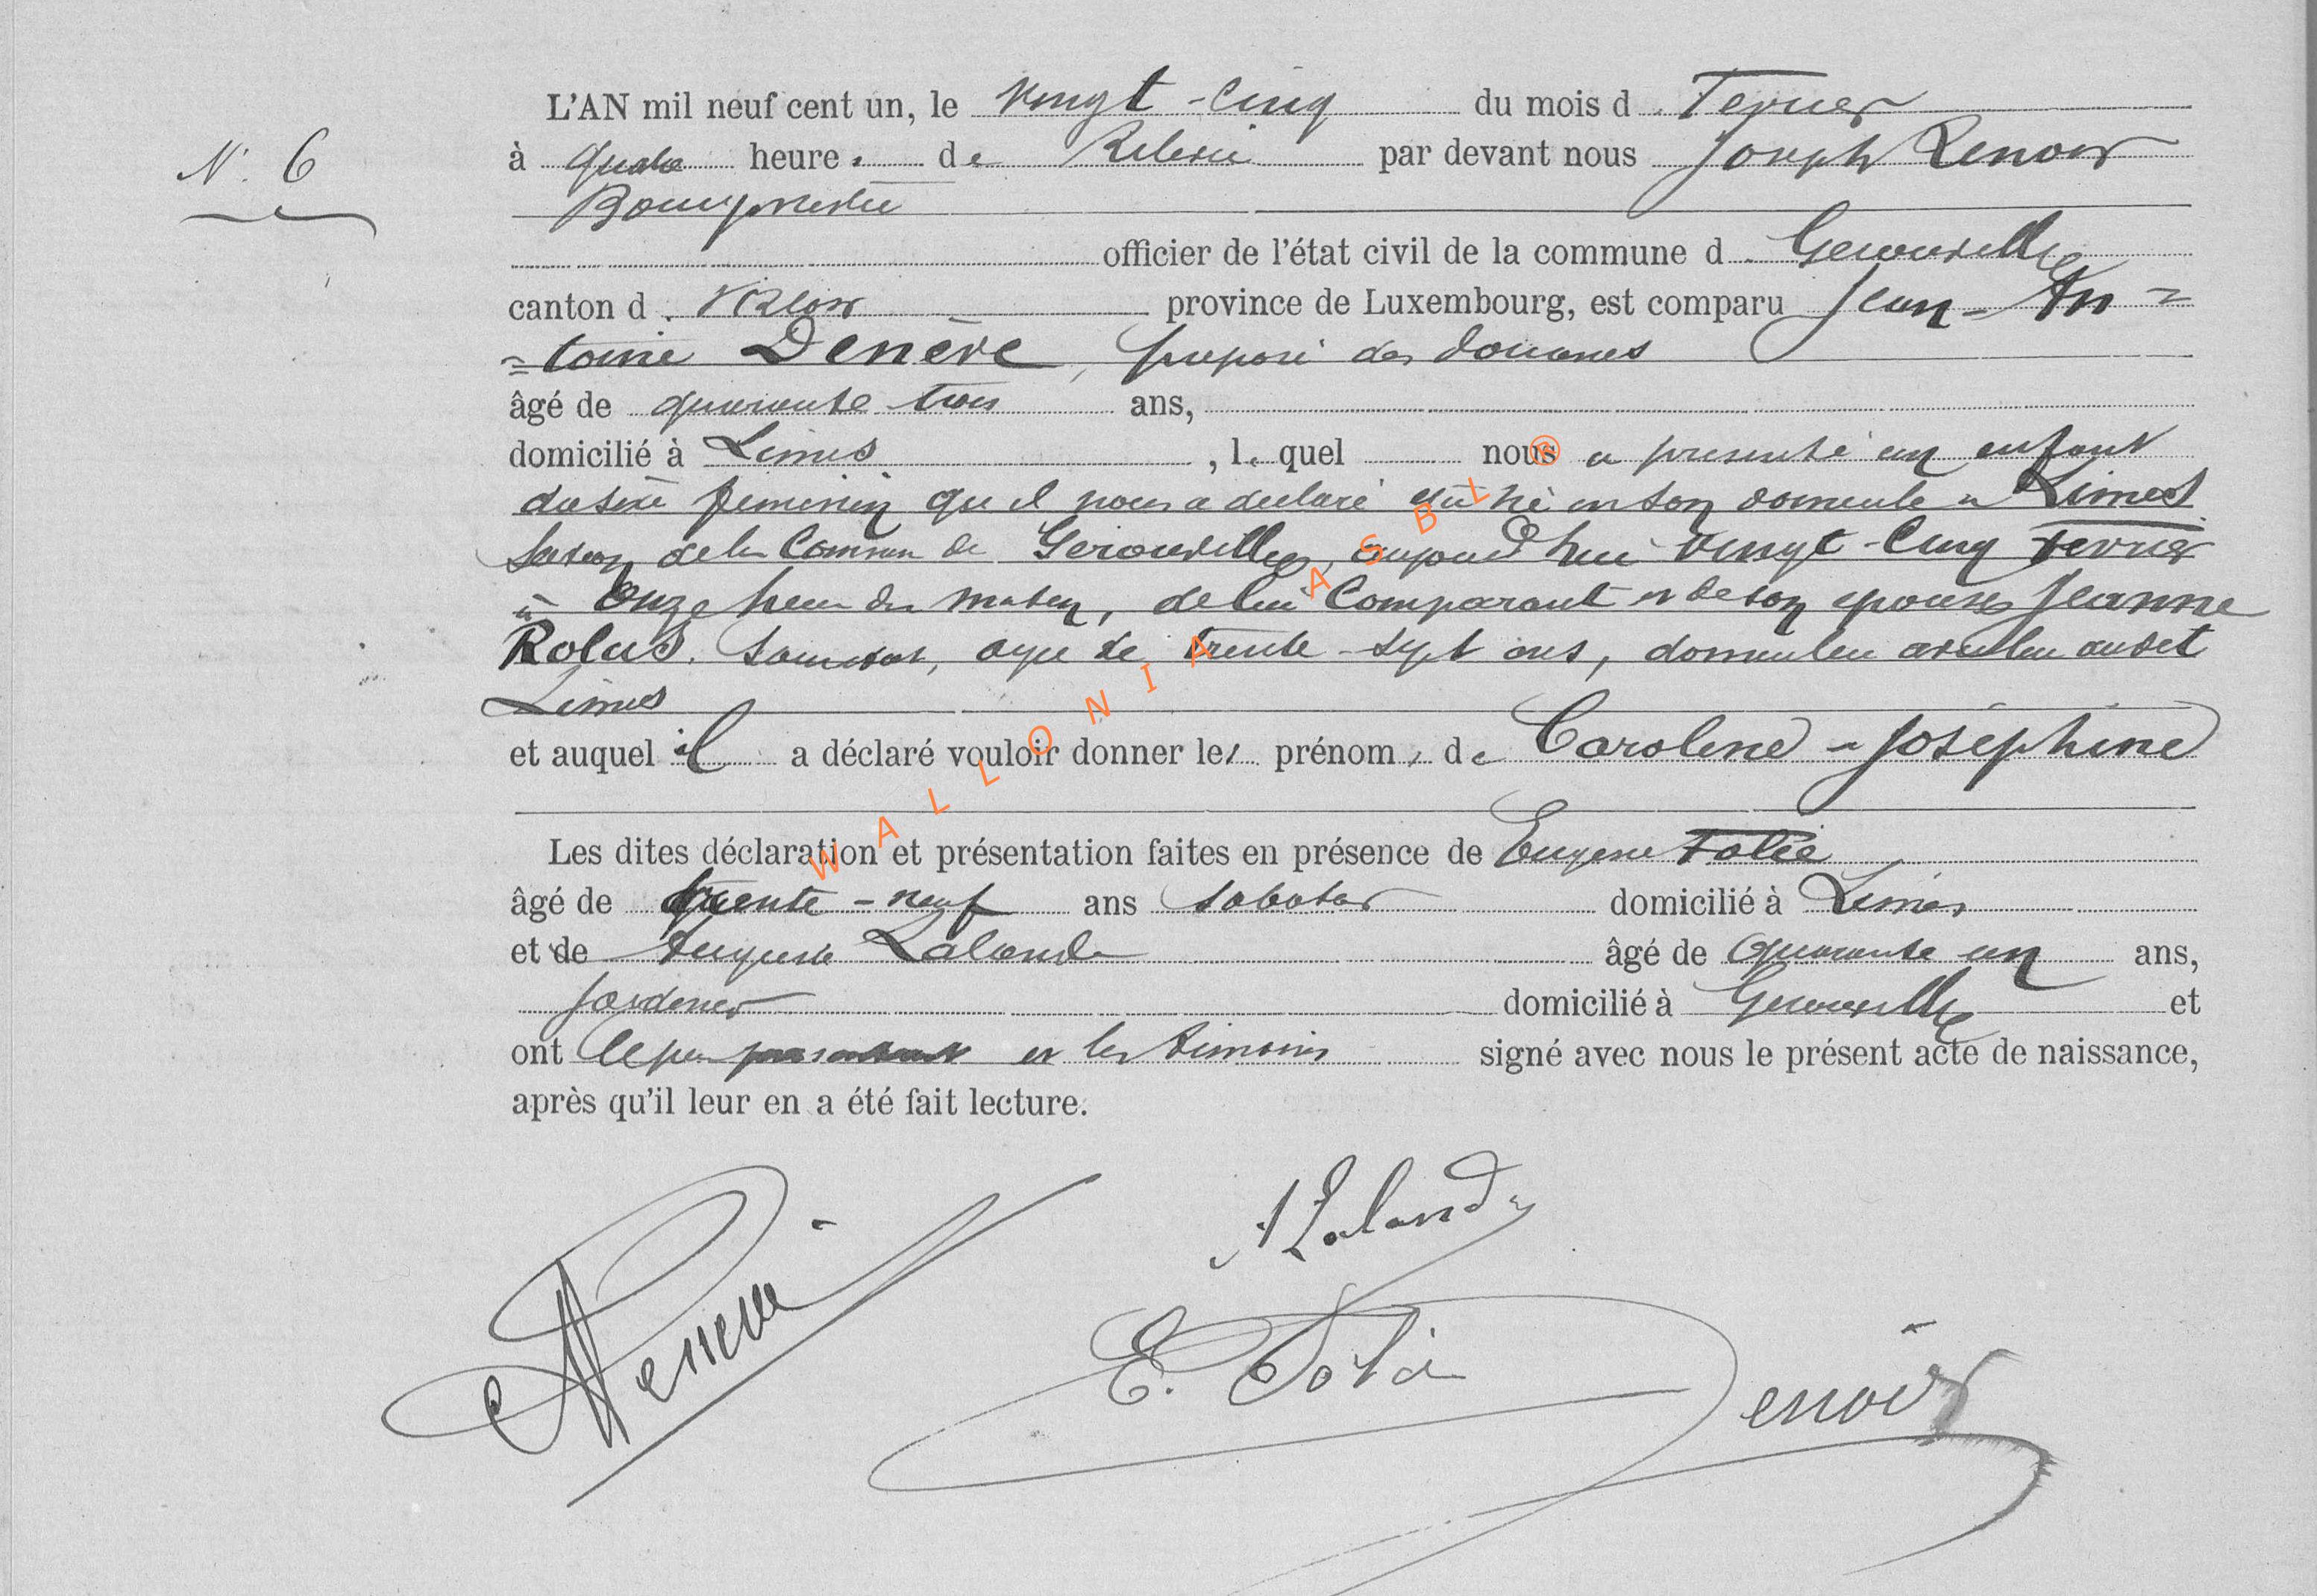 L'AN mil neuf cent un, le vingt-cinq du mois d. Fevrier
N. 6
à quatre heure. de Relevée par devant nous Joseph Renoir
Bourgmestre
officier de l'état civil de la commune d. Gerouville
canton d. Virton province de Luxembourg, est comparu Jean-An=
=toine Denère, préposé des douanes
âgé de quarante trois ans,
domicilié à Limes, l. quel nous a presenté un enfant
du sexe feminin qu'il nous a declaré être né en son domicile a Limes
Section de la Commune de Gerouville, aujourd'hui vingt-cinq Fevrier
à Onze heure du matin, de lui Comparant et de son epouse Jeanne
Rolus. agee de trente-sept ans, domiciliee avec lui audit
Limes
et auquel il a déclaré vouloir donner les prénoms de Caroline-Joséphine
Les dites déclaration et présentation faites en présence de Eugene Folie
âgé de trente-neuf ans sabotier domicilié à Limes
et de Auguste Lalande âgé de quarante un ans,
jardinier domicilié à Gerouville et
ont le pere et les témoins signé avec nous le présent acte de naissance,
après qu'il leur en a été fait lecture.
A Lalande
Denère
E. Folie
Renoir
WALLONIA ASBL ®